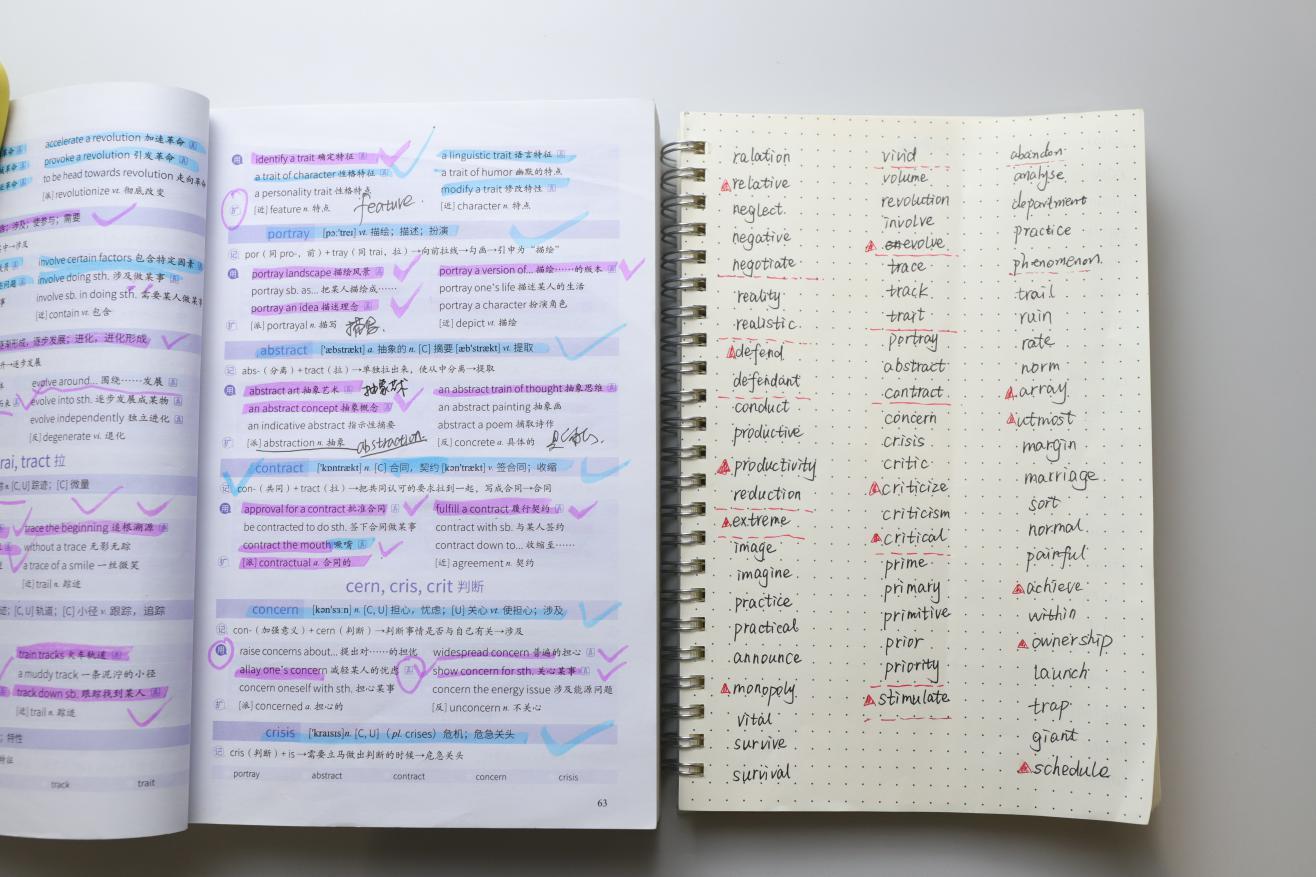 accelerate a revolution 加速革命
provoke a revolution 引发革命
to be head towards revolution 走向革命
[派] revolutionize vt. 彻底改变
涉及；使参与；需要
involve certain factors 包含特定因素
involve doing sth. 涉及做某事
involve sb. in doing sth. 需要某人做某事
[近] contain vt. 包含
逐渐形成，逐步发展；进化，进化形成
evolve around… 围绕……发展
evolve into sth. 逐步发展成某物
evolve independently 独立进化
[反] degenerate vi. 退化
trai, tract 拉
[C, U] 踪迹；[C] 微量
trace the beginning 追根溯源
without a trace 无影无踪
a trace of a smile 一丝微笑
[近] trail n. 踪迹
[C, U] 轨道；[C] 小径 v. 跟踪，追踪
train tracks 火车轨道
a muddy track 一条泥泞的小径
track down sb. 跟踪找到某人
[近] trail n. 踪迹
特性
track trait
用 identify a trait 确定特征 a linguistic trait 语言特征
a trait of character 性格特征 a trait of humor 幽默的特点
a personality trait 性格特点 modify a trait 修改特性
扩 [近] feature n. 特点 feature. [近] character n. 特点
portray [pɔːˈtreɪ] vt. 描绘；描述；扮演
记 por（同 pro-，前）+ tray（同 trai，拉）→向前拉线→勾画→引申为“描绘”
用 portray landscape 描绘风景 portray a version of… 描绘……的版本
portray sb. as… 把某人描绘成…… portray one's life 描述某人的生活
portray an idea 描述理念 portray a character 扮演角色
扩 [派] portrayal n. 描写 描绘. [近] depict vt. 描绘
abstract [ˈæbstrækt] a. 抽象的 n. [C] 摘要 [æbˈstrækt] vt. 提取
记 abs-（分离）+ tract（拉）→单独拉出来，使从中分离→提取
用 abstract art 抽象艺术 抽象艺术 an abstract train of thought 抽象思维
an abstract concept 抽象概念 an abstract painting 抽象画
an indicative abstract 指示性摘要 abstract a poem 摘取诗作
扩 [派] abstraction n. 抽象 abstraction. [反] concrete a. 具体的 具体的.
contract [ˈkɒntrækt] n. [C] 合同，契约 [kənˈtrækt] v. 签合同；收缩
记 con-（共同）+ tract（拉）→把共同认可的要求拉到一起，写成合同→合同
用 approval for a contract 批准合同 fulfill a contract 履行契约
be contracted to do sth. 签下合同做某事 contract with sb. 与某人签约
contract the mouth 噘嘴 contract down to… 收缩至……
扩 [派] contractual a. 合同的 [近] agreement n. 契约
cern, cris, crit 判断
concern [kənˈsɜːn] n. [C, U] 担心，忧虑；[U] 关心 vt. 使担心；涉及
记 con-（加强意义）+ cern（判断）→判断事情是否与自己有关→涉及
用 raise concerns about… 提出对……的担忧 widespread concern 普遍的担心
allay one's concern 减轻某人的忧虑 show concern for sth. 关心某事
concern oneself with sth. 担心某事 concern the energy issue 涉及能源问题
扩 [派] concerned a. 担心的 [反] unconcern n. 不关心
crisis [ˈkraɪsɪs] n. [C, U]（pl. crises）危机；危急关头
记 cris（判断）+ is→需要立马做出判断的时候→危急关头
portray abstract contract concern crisis
63
ralation
relative
neglect.
negative
negotiate
reality
realistic
defend
defendant
conduct
productive
productivity
reduction
extreme
image
imagine
practice
practical
announce
monopoly
vital
survive
survival
vivid
volume
revolution
involve
evolve
trace
track
trait
portray
abstract
contract
concern
crisis
critic
criticize
criticism
critical
prime
primary
primitive
prior
priority
stimulate
abandon
analyse
department
practice
phenomenon
trail
ruin
rate
norm
array
utmost
margin
marriage
sort
normal
painful
achieve
within
ownership
launch
trap
giant
schedule